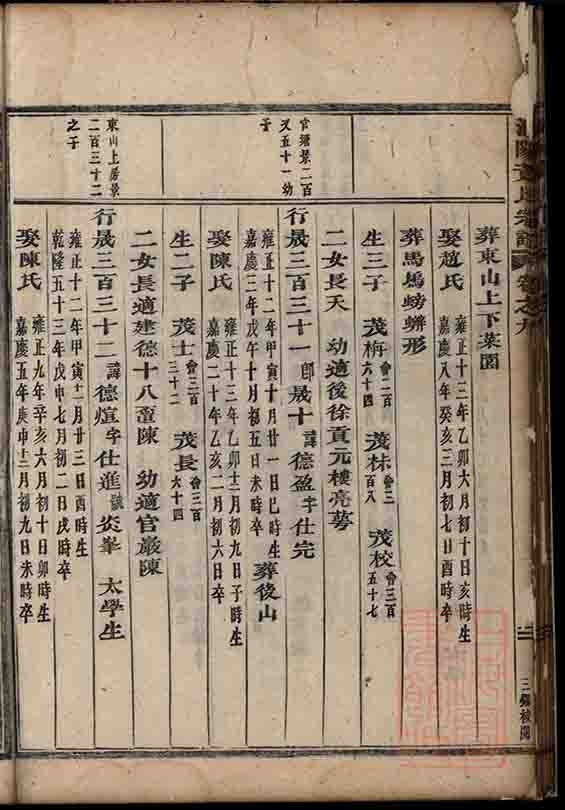 葬東山上下菜園
娶趙氏 雍正十三年乙卯六月初十日亥時生
嘉慶八年癸亥三月初七日酉時卒
葬馬塢螃蠏形
生三子 茂梅 會二百六十四 茂林 會三百八 茂校 會三百五十七
二女長夭 幼適後徐貢元樓亮萼
官塘景二百
又五十一幼
子
行晟三百三十一 郎晟十 諱德盈 字仕完
雍正十二年甲寅十月廿一日巳時生
嘉慶三年戊午十月初五日未時卒 葬後山
娶陳氏 雍正十三年乙卯十二月初九日子時生
嘉慶二十年乙亥二月初六日卒
生二子 茂士 會三百三十二 茂長 會三百六十四
二女長適建德十八畝陳 幼適官巖陳
東山上房景
二百三十二
之子
行晟三百三十二 諱德煊 字仕進 號炎峯 太學生
雍正十二年甲寅十二月廿三日酉時生
乾隆五十三年戊申七月初二日戌時卒
娶陳氏 雍正九年辛亥六月初十日卯時生
嘉慶五年庚申十二月初九日未時卒
氏宗譜 卷之九